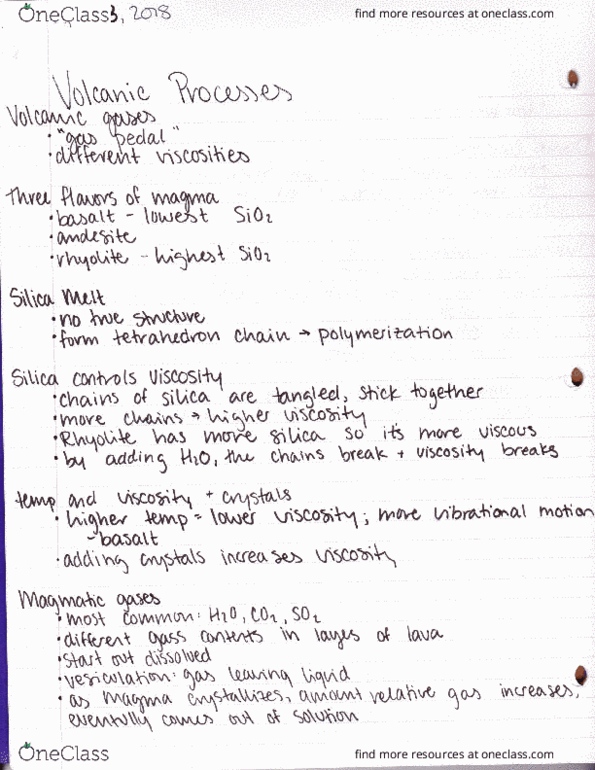 OneClass 3, 2018
find more resources at oneclass.com
Volcanic Processes
Volcanic gases
· "gas pedal"
· different viscosities
Three flavors of magma
· basalt - lowest SiO₂
· andesite
· rhyolite - highest SiO₂
Silica Melt
· no true structure
· form tetrahedron chain → polymerization
Silica controls viscosity
· chains of silica are tangled, stick together
· more chains → higher viscosity
· Rhyolite has more silica so its more viscous
· by adding H₂O, the chains break + viscosity breaks
temp and viscosity + crystals
· higher temp = lower viscosity; more vibrational motion
- basalt
· adding crystals increases viscosity
Magmatic gases
· most common: H₂O, CO₂, SO₂
· different gass contents in layes of lava
· start out dissolved
· vesiculation: gas leaving liquid
· as magma crystallizes, amount relative gas increases,
eventully comes out of solution
OneClass
find more resources at oneclass.com